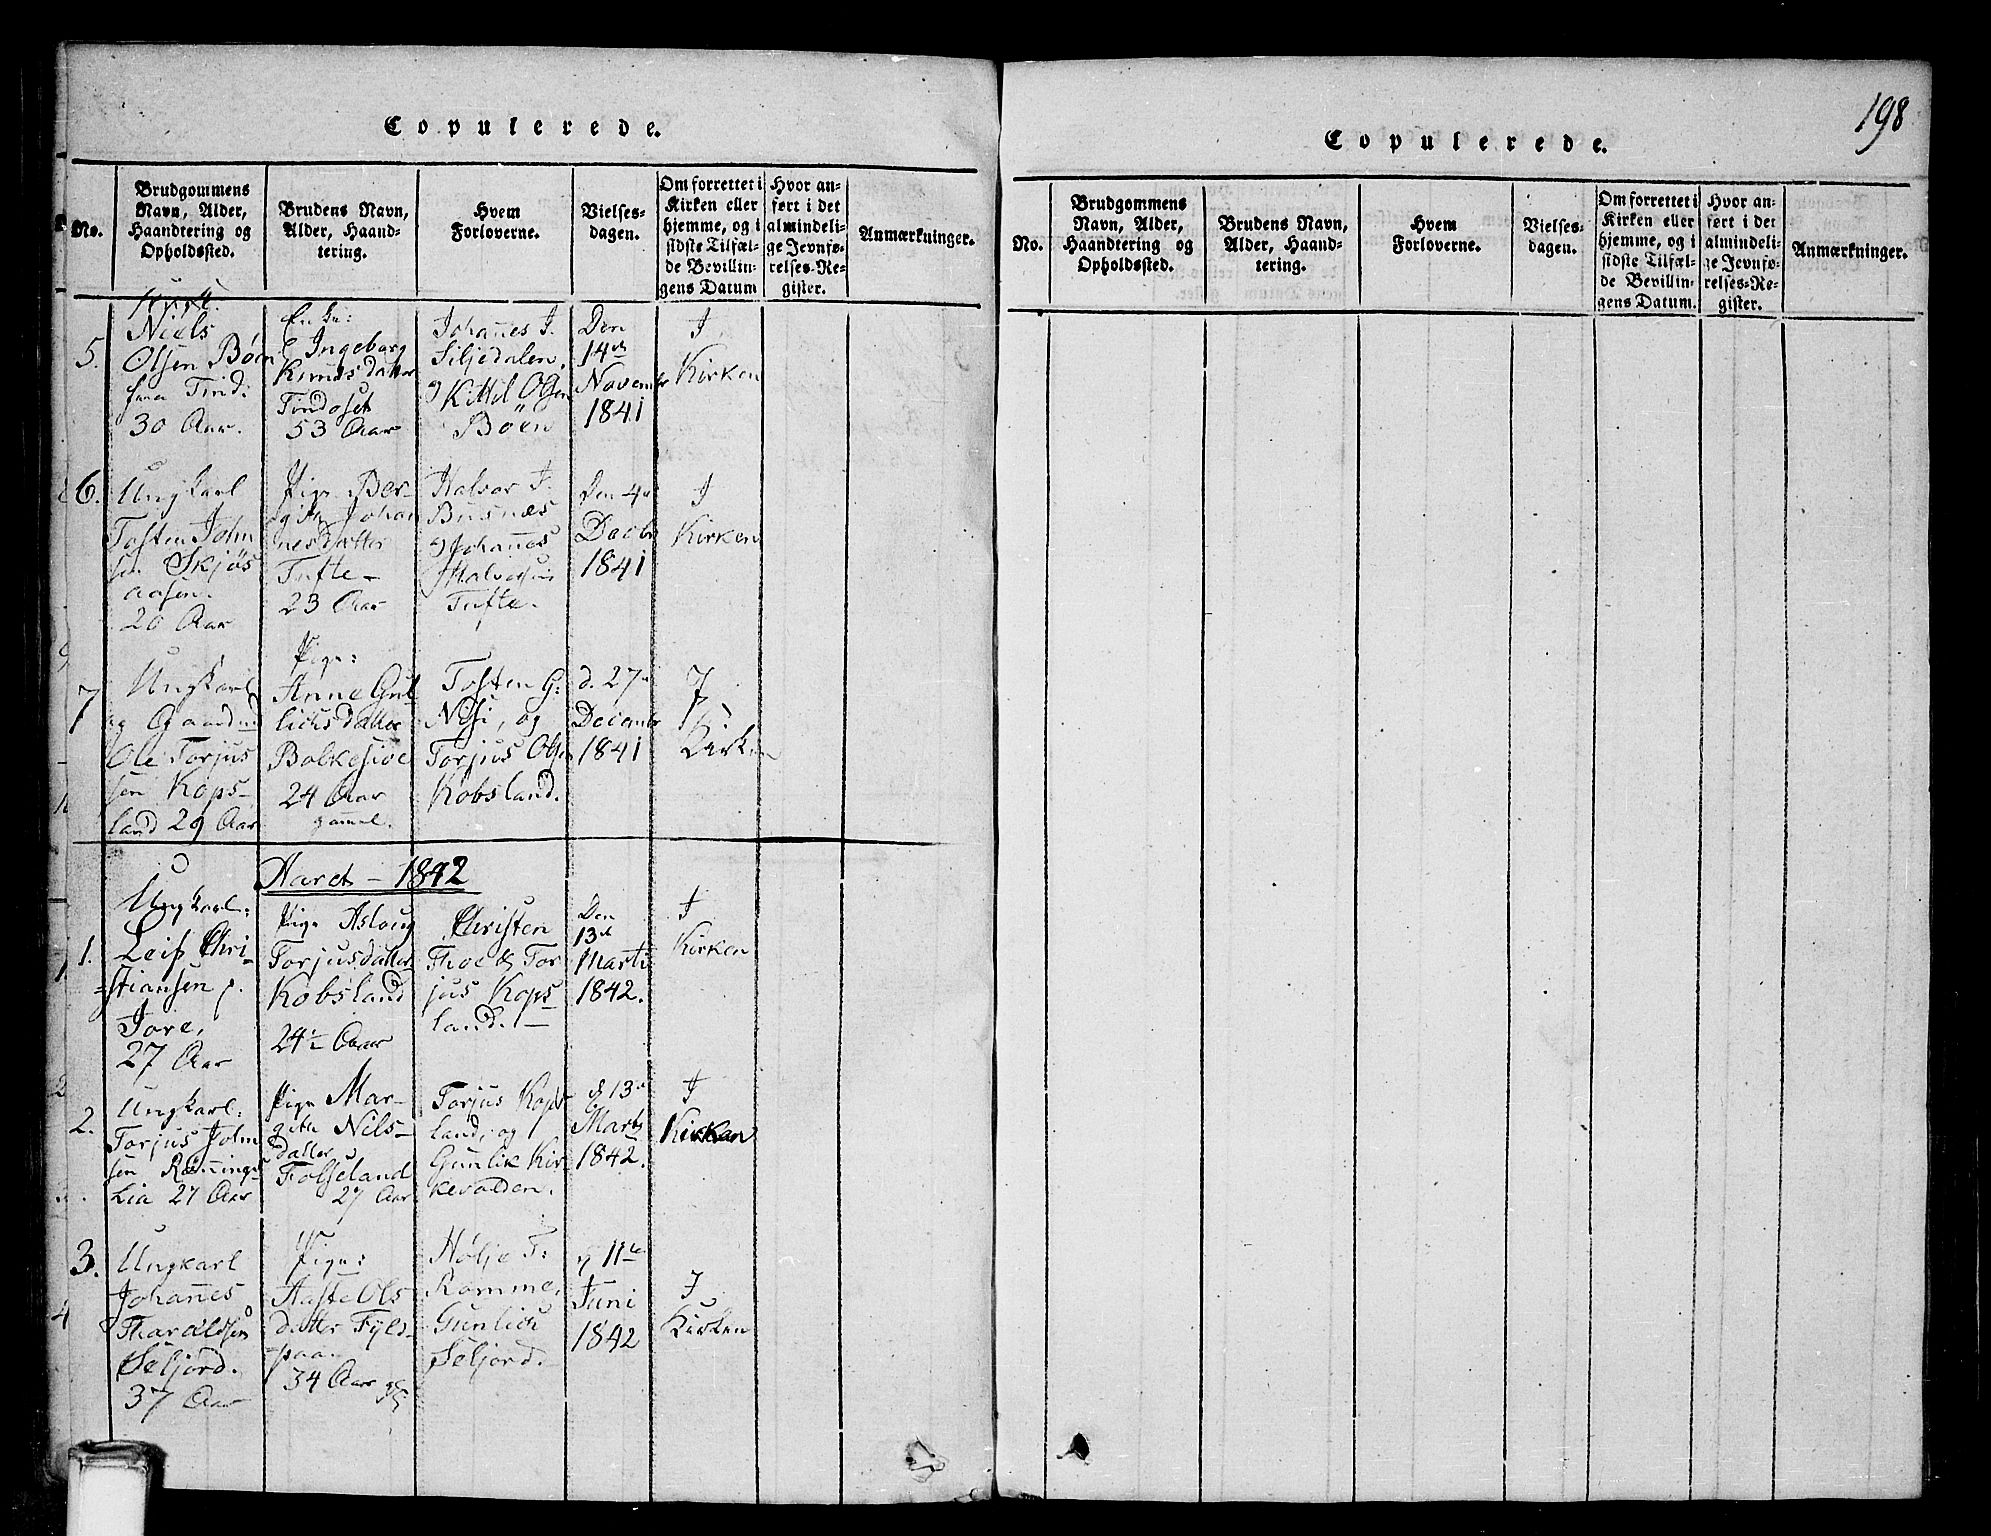 Copulerede.
No.
Brudgommens
Navn, Alder,
Haandtering og
Opholdssted.
Brudens Navn,
Alder, Haand-
tering.
Hvem
Forloverne.
Vielses-
dagen.
Om forrettet i
Kirken eller
hjemme, og i
sidste Tilfæl-
de Bevillin-
gens Datum
Hvor an-
ført i det
almindeli-
ge Jevnfø-
relses-Re-
gister.
Anmærkninger.
5.
Niels
Olsen Böen
fra Tind:
30 Aar.
Enke:
Ingeborg
Knudsdatter
Tindoset
53 Aar
Johannes J.
Siljedalen,
Kittel Olsen
Böen
Den
14de
Novembr
1841
I
Kirken
6.
Ungkarl
Tosten John
sen Skjös
aasen.
20 Aar
Pige Ber-
gith Johan
nesdatter
Tufte –
23 Aar
Halvor J.
Busnæs
Johannes
Halvorsen
Tufte.
den 4de
Decbr
1841
I
Kirken
7
Ungkarl
og Gaardmd
Ole Torjus
sen Kops-
land 29 Aar
Pige:
Anne Gul
lichsdatter
Bolkesiøe
24 Aar
gammel.
Tosten G:
Nisi, og
Torjus Olsen
Kobsland.
d. 27de
Decembr
1841
I
Kirken
Aaret – 1842
1.
Ungkarl:
Leif Chri-
stiansen
Jore,
27 Aar
Pige Aslaug
Torjusdatter
Kobsland
24½ Aar
Christen
Thoe & Tor
jus Kops
land. –
Den
13de
Marti
1842.
I
Kirken
2.
Ungkarl:
Torjus John
sen Rönnings
Lia 27 Aar
Pige Mar-
gith Nils-
datter
Folseland
27 Aar
Torjus Kops
land, og
Gunlik Kir
kevolden.
d 13de
Marts
1842.
I
Kirken
3.
Ungkarl
Johannes
Tharaldsen
Seljord.
37 Aar
Pige:
Aaste Ols
datter Fyls-
paa.
34 Aar
Hölje T:
Romme,
Gunlich
Seljord.
d 11te
Juni
1842
I
Kirken
198
Copulerede.
No.
Brudgommens
Navn, Alder,
Haandtering og
Opholdssted.
Brudens Navn,
Alder, Haand-
tering.
Hvem
Forloverne.
Vielses-
dagen.
Om forrettet i
Kirken eller
hjemme, og i
sidste Tilfæl-
de Bevillin-
gens Datum.
Hvor an-
ført i det
almindeli-
ge Jevnfø-
relses-Re-
gister.
Anmærkninger.